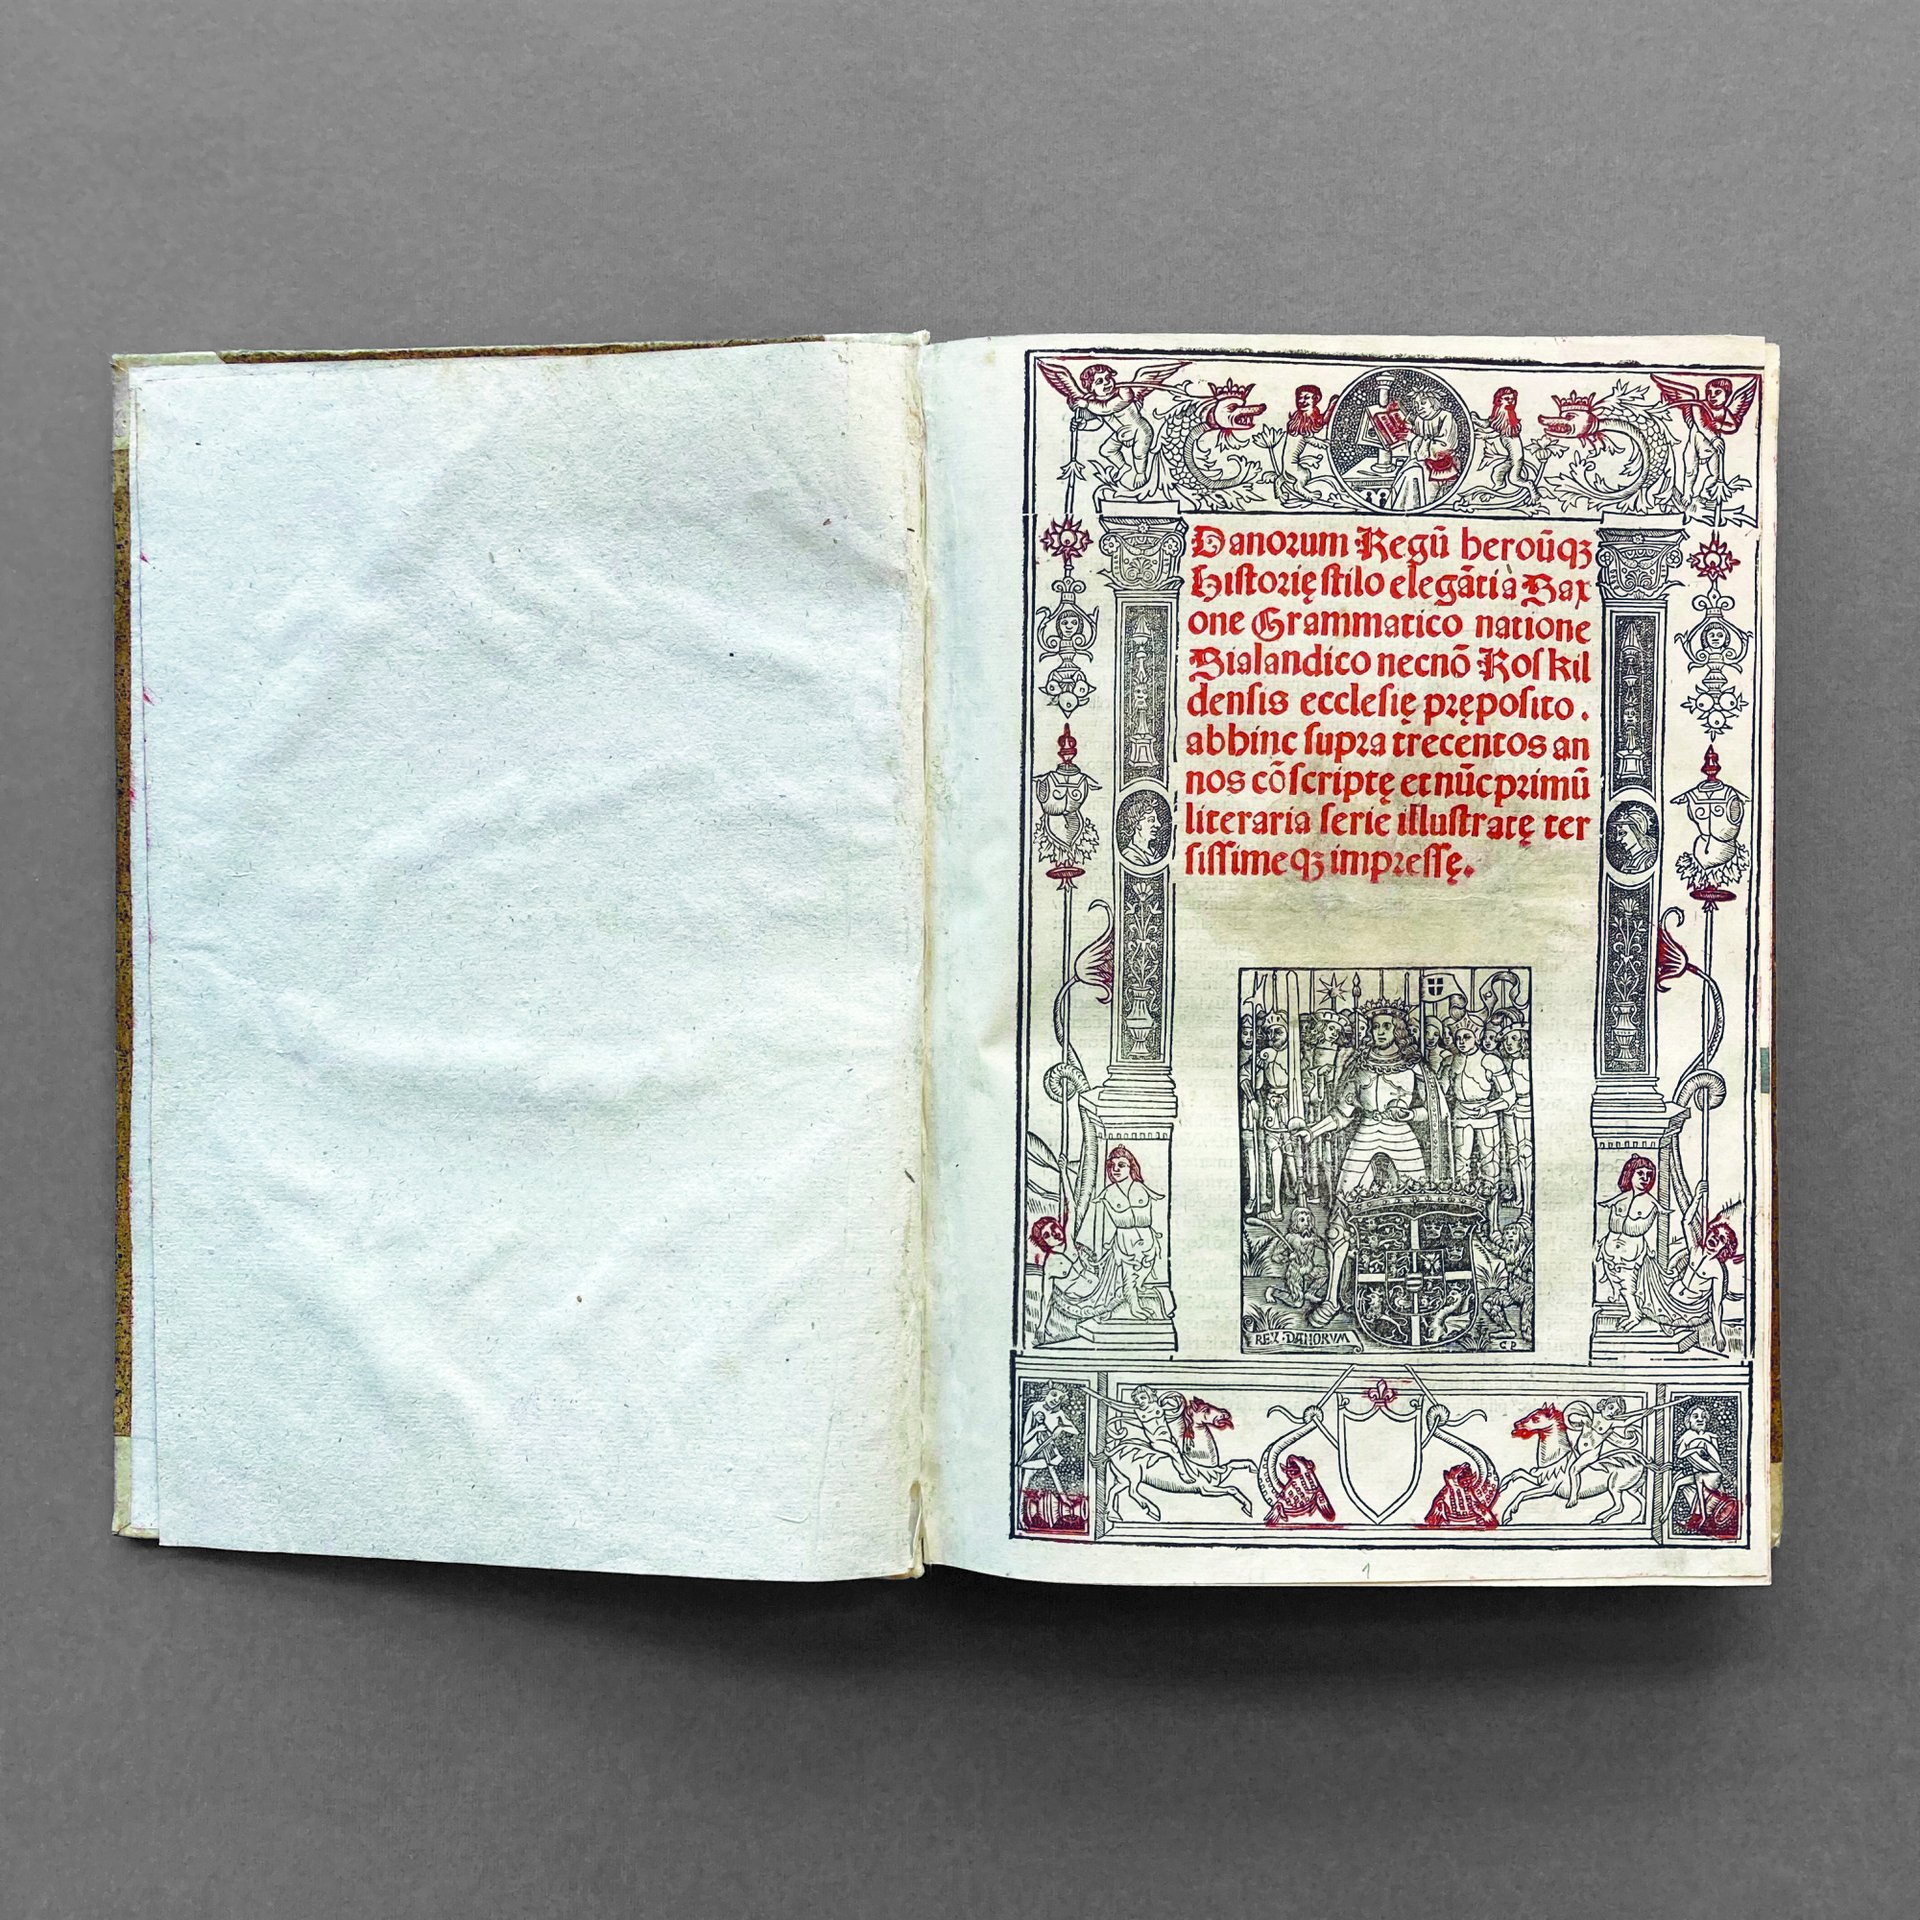 Danorum Regū heroūqꝫ
Historię stilo elegāti a Sax
one Grammatico natione
Sialandico necnō Roskil
densis ecclesię pręposito.
abhinc supra trecentos an
nos cōscriptę et nūc primū
literaria serie illustratę ter
sissimeqꝫ impressę.
REX DANORVM
C P
1